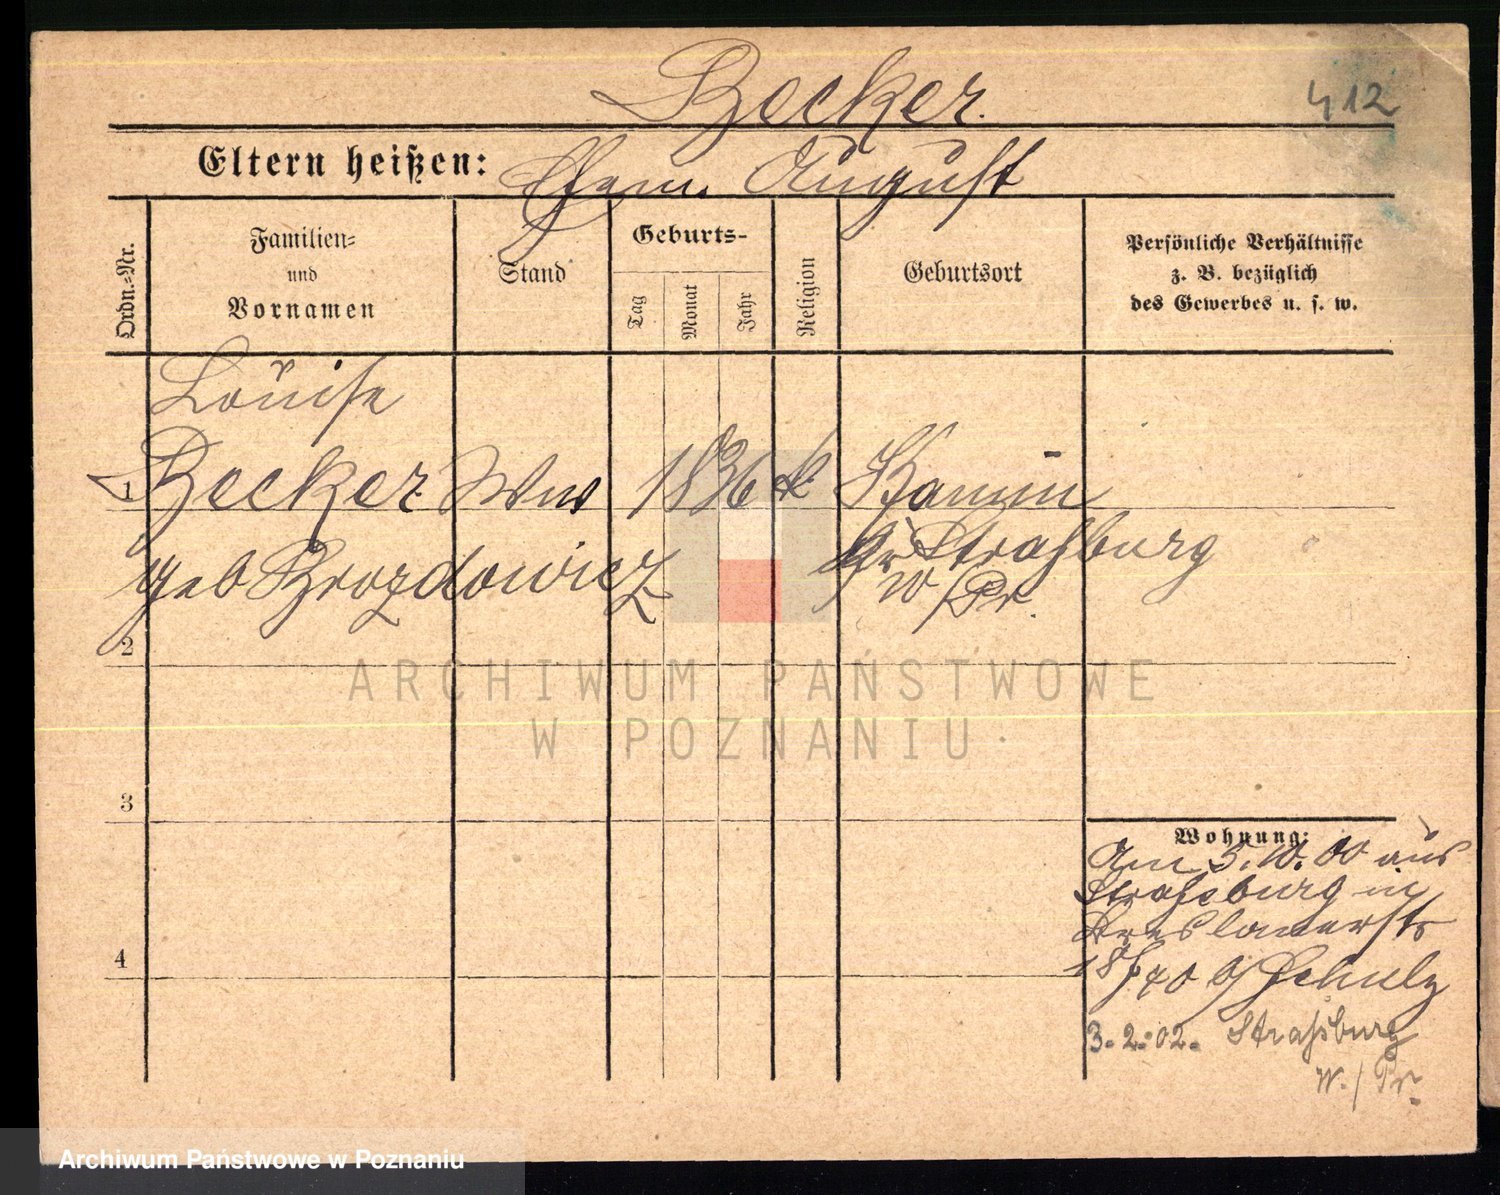 Becker.
412
Eltern heißen:
Ehem. August
Ordn.-Nr.
Familien-
und
Vornamen
Stand
Geburts-
Tag
Monat
Jahr
Religion
Geburtsort
Persönliche Verhältnisse
z. B. bezüglich
des Gewerbes u. s. w.
Louise
1 Becker Ww 1836 k. Kamin
geb Brozdowicz Kr Straßburg
W/Pr.
2
3
4
Wohnung:
Am 5.10.00 aus
Strassburg in
Breslauerstr
18/ 40 b/ Schulz
3.2.02. Strassburg
W./Pr.
ARCHIWUM PAŃSTWOWE
W POZNANIU
Archiwum Państwowe w Poznaniu